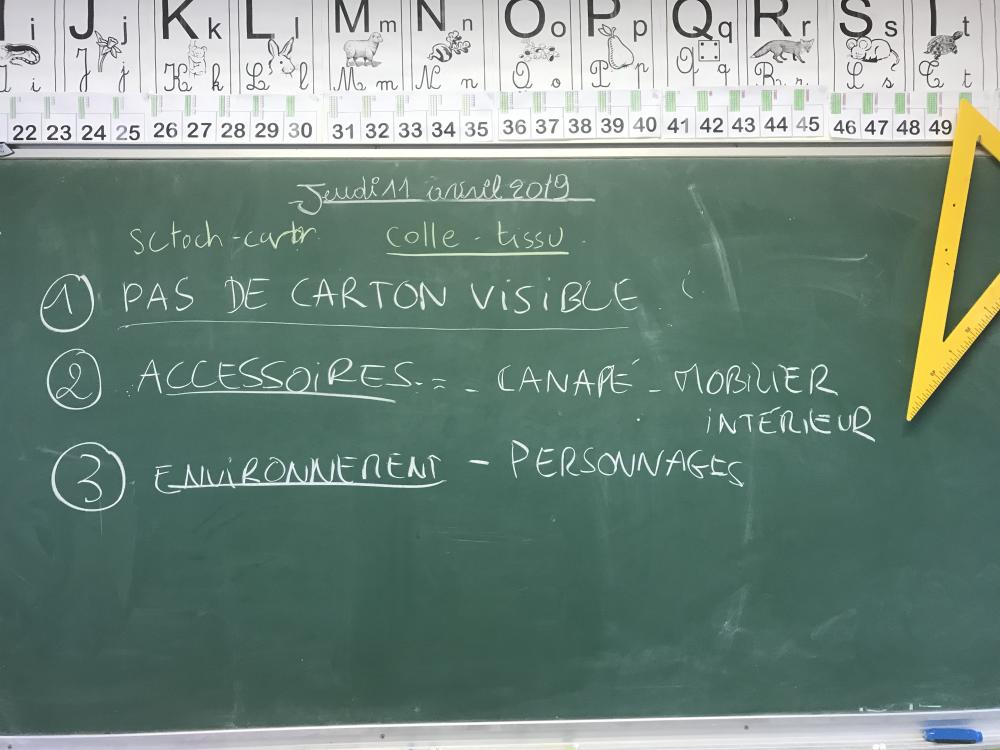 i J j K k L l M m N n O o P p Q q R r S s T t
i i J j K k L l M m N n O o P p Q q R r S s T t
22 23 24 25 26 27 28 29 30 31 32 33 34 35 36 37 38 39 40 41 42 43 44 45 46 47 48 49
Jeudi 11 avril 2019
Sctoch-cartr colle - tissu
① PAS DE CARTON VISIBLE
② ACCESSOIRES = - CANAPÉ - MOBILIER
INTÉRIEUR
③ ENVIRONNEMENT - PERSONNAGES